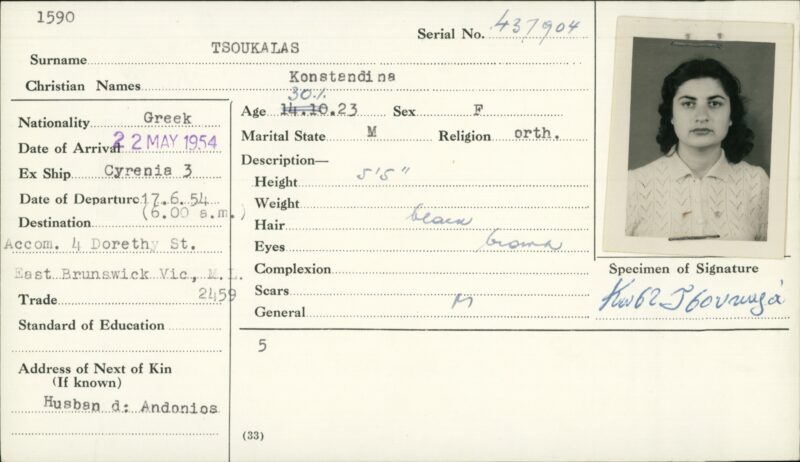 1590
Serial No. 437904
Surname TSOUKALAS
Christian Names Konstandina
Nationality Greek
Date of Arrival 22 MAY 1954
Ex Ship Cyrenia 3
Date of Departure 17.6.54
(6.00 a.m.)
Destination
Accom. 4 Dorethy St.
East Brunswick Vic., M.L.
2459
Trade
Standard of Education
Address of Next of Kin
(If known)
Husban d: Andonios
30.1.
Age 14.10.23 Sex F
Marital State M Religion orth.
Description—
Height 5'5"
Weight
Hair black
Eyes brown
Complexion
Scars
General M
5
(33)
Specimen of Signature